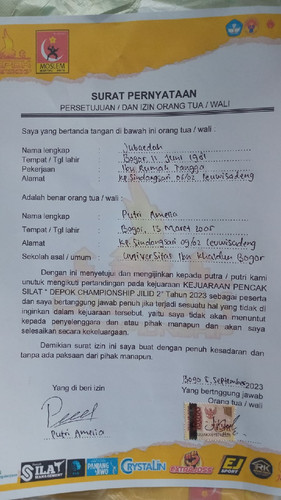 MOSLEM
SURAT PERNYATAAN
PERSETUJUAN / DAN IZIN ORANG TUA / WALI
Saya yang bertanda tangan di bawah ini orang tua / wali :
Nama lengkap : Jubaedah
Tempat / Tgl lahir : Bogor, 11 Juni 1981
Pekerjaan : Ibu Rumah Tangga
Alamat : KP. Sindangsari 09/02 Leuwisadeng
Adalah benar orang tua / wali :
Nama lengkap : Putri Amelia
Tempat / Tgl lahir : Bogor, 13 Maret 2005
Alamat : KP. Sindangsari 09/02 Leuwisadeng
Sekolah asal / umum : Universitas Ibn Khaldun Bogor
Dengan ini menyetujui dan mengijinkan kepada putra / putri kami
untuk mengikuti pertandingan pada kejuaraan KEJUARAAN PENCAK
SILAT " DEPOK CHAMPIONSHIP JILID 2" Tahun 2023 sebagai peserta
dan saya bertanggung jawab penuh jika terjadi sesuatu hal yang tidak di
inginkan dalam kejuaraan tersebut, yaitu saya tidak akan menuntut
kepada penyelenggara dan atau pihak manapun dan akan saya
selesaikan secara kekeluargaan.
Demikian surat izin ini saya buat dengan penuh kesadaran dan
tanpa ada paksaan dari pihak manapun.
Bogor, 5, September 2023
Yang di beri izin
Yang bertnggung jawab
Orang tua / wali
Putri Amelia
SILAT
CRYSTALIN
EJ SPORT
RK